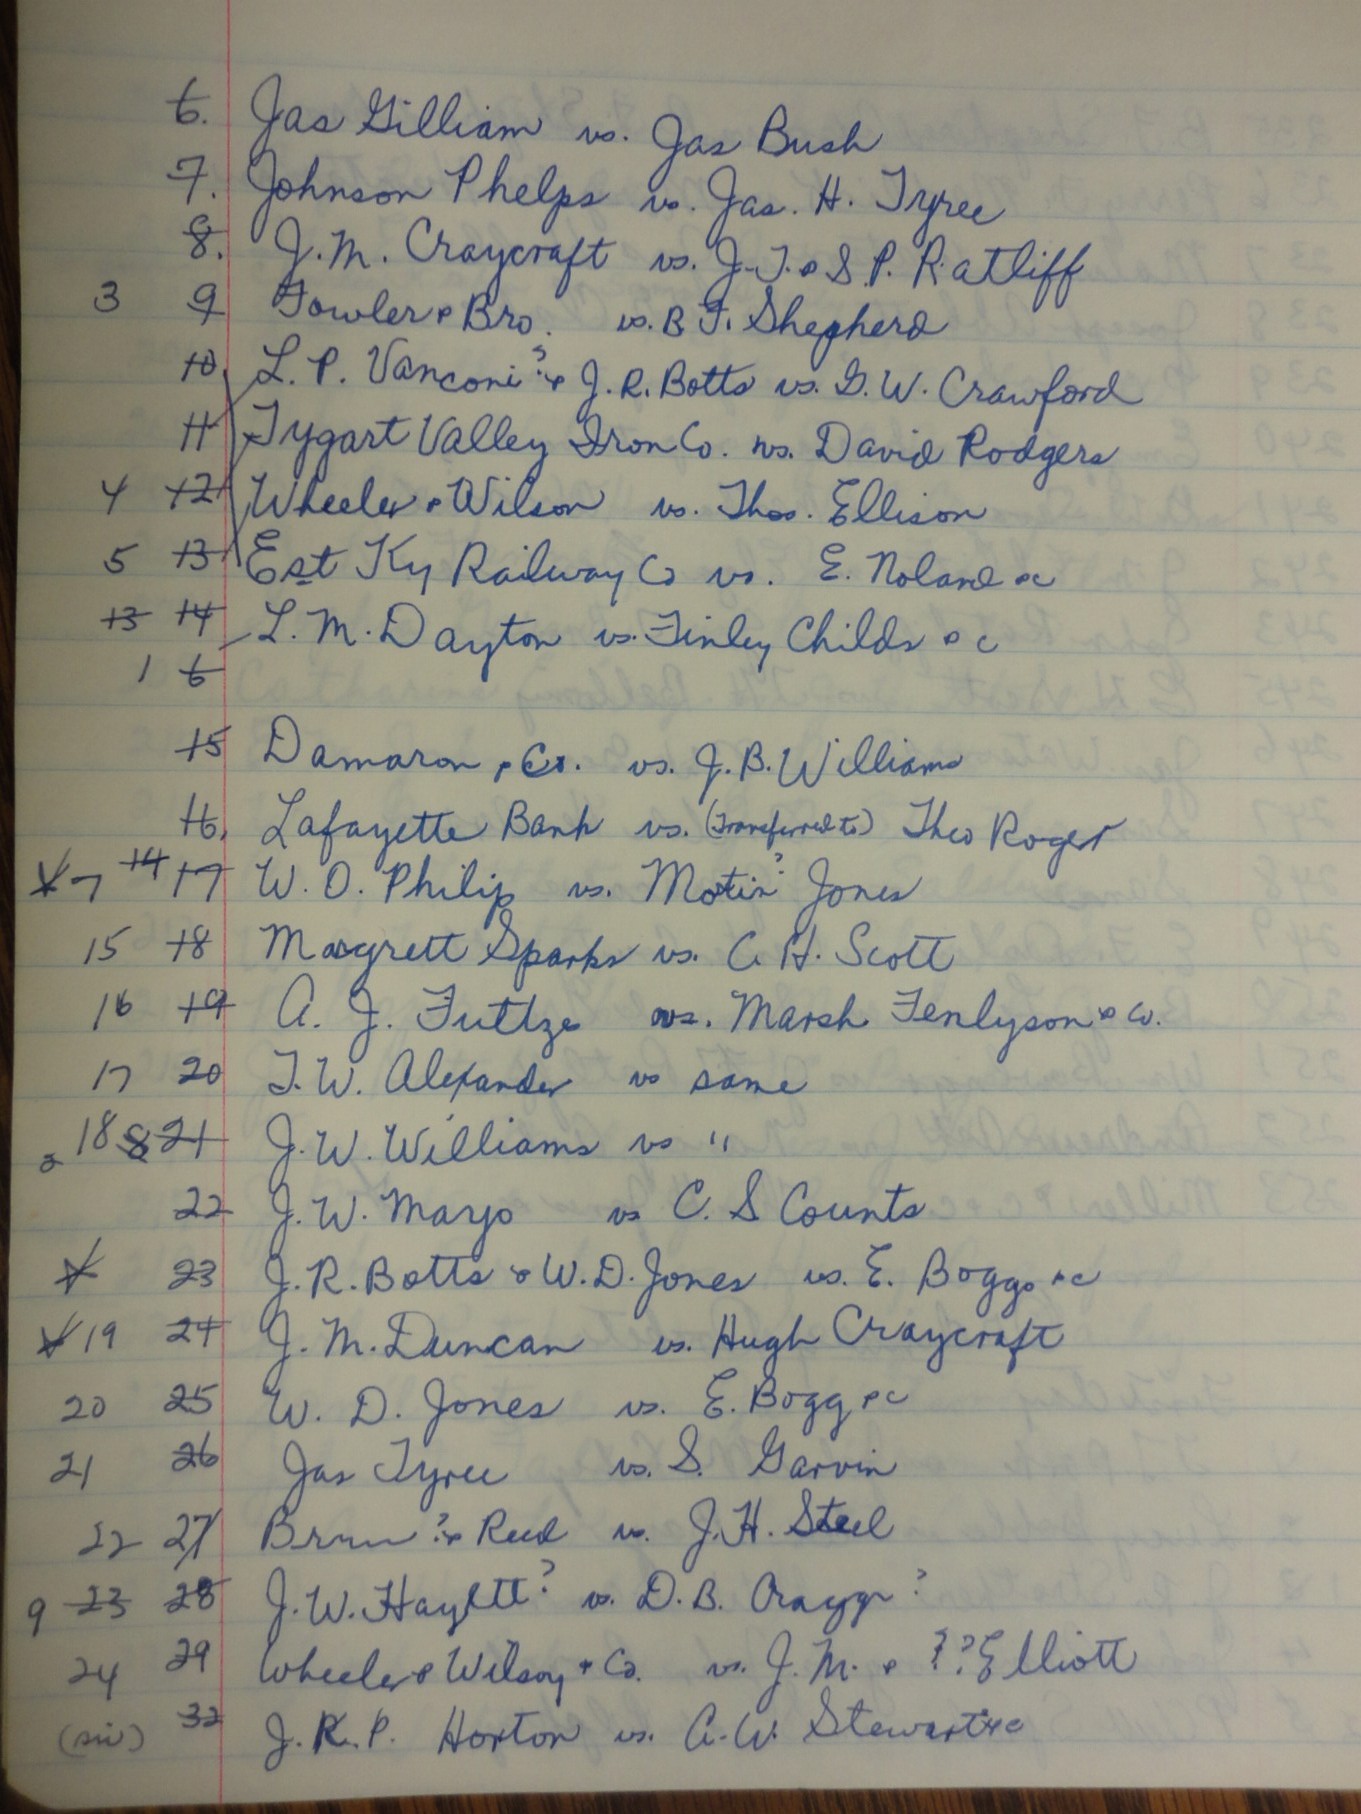 6. Jas Gilliam vs. Jas Bush
7. Johnson Phelps vs. Jas. H. Tyree
8. J. M. Craycraft vs. J. T. & S. P. Ratliff
3 9 Fowler & Bro. vs. B F. Shepherd
10. L. P. Vanconi? & J. R. Botts vs. G. W. Crawford
11 Tygart Valley Iron Co. vs. David Rodgers
4 12 Wheeler & Wilson vs. Thos. Ellison
5 13 Est Ky Railway Co vs. E. Noland &c
13 14 L. M. Dayton vs. Finley Childs &c
1 6
15 Damaron & Co. vs. J. B. Williams
16. Lafayette Bank vs. (Transferred to) Theo Roger
7 14 17 W. O. Philip vs. Motin? Jones
15 18 Margrett Sparks vs. C. H. Scott
16 19 A. J. Fultze vs. Marsh Fenlyson & co.
17 20 T. W. Alexander vs same
2 18 8 21 J. W. Williams vs "
22 J. W. Mayo vs C. S Counts
23 J. R. Botts & W. D. Jones vs. E. Boggs &c
19 24 J. M. Duncan vs. Hugh Craycraft
20 25 W. D. Jones vs. E. Bogg &c
21 26 Jas Tyree vs. S. Garvin
22 27 Brun? & Reed vs. J. H. Steel
9 23 28 J. W. Hayltt? vs. D. B. Crayyr?
24 29 Wheeler & Wilsoy & Co. vs. J. M. & ?? Elliott
(sic) 32 J. R. P. Horton vs. A. W. Stewart &c